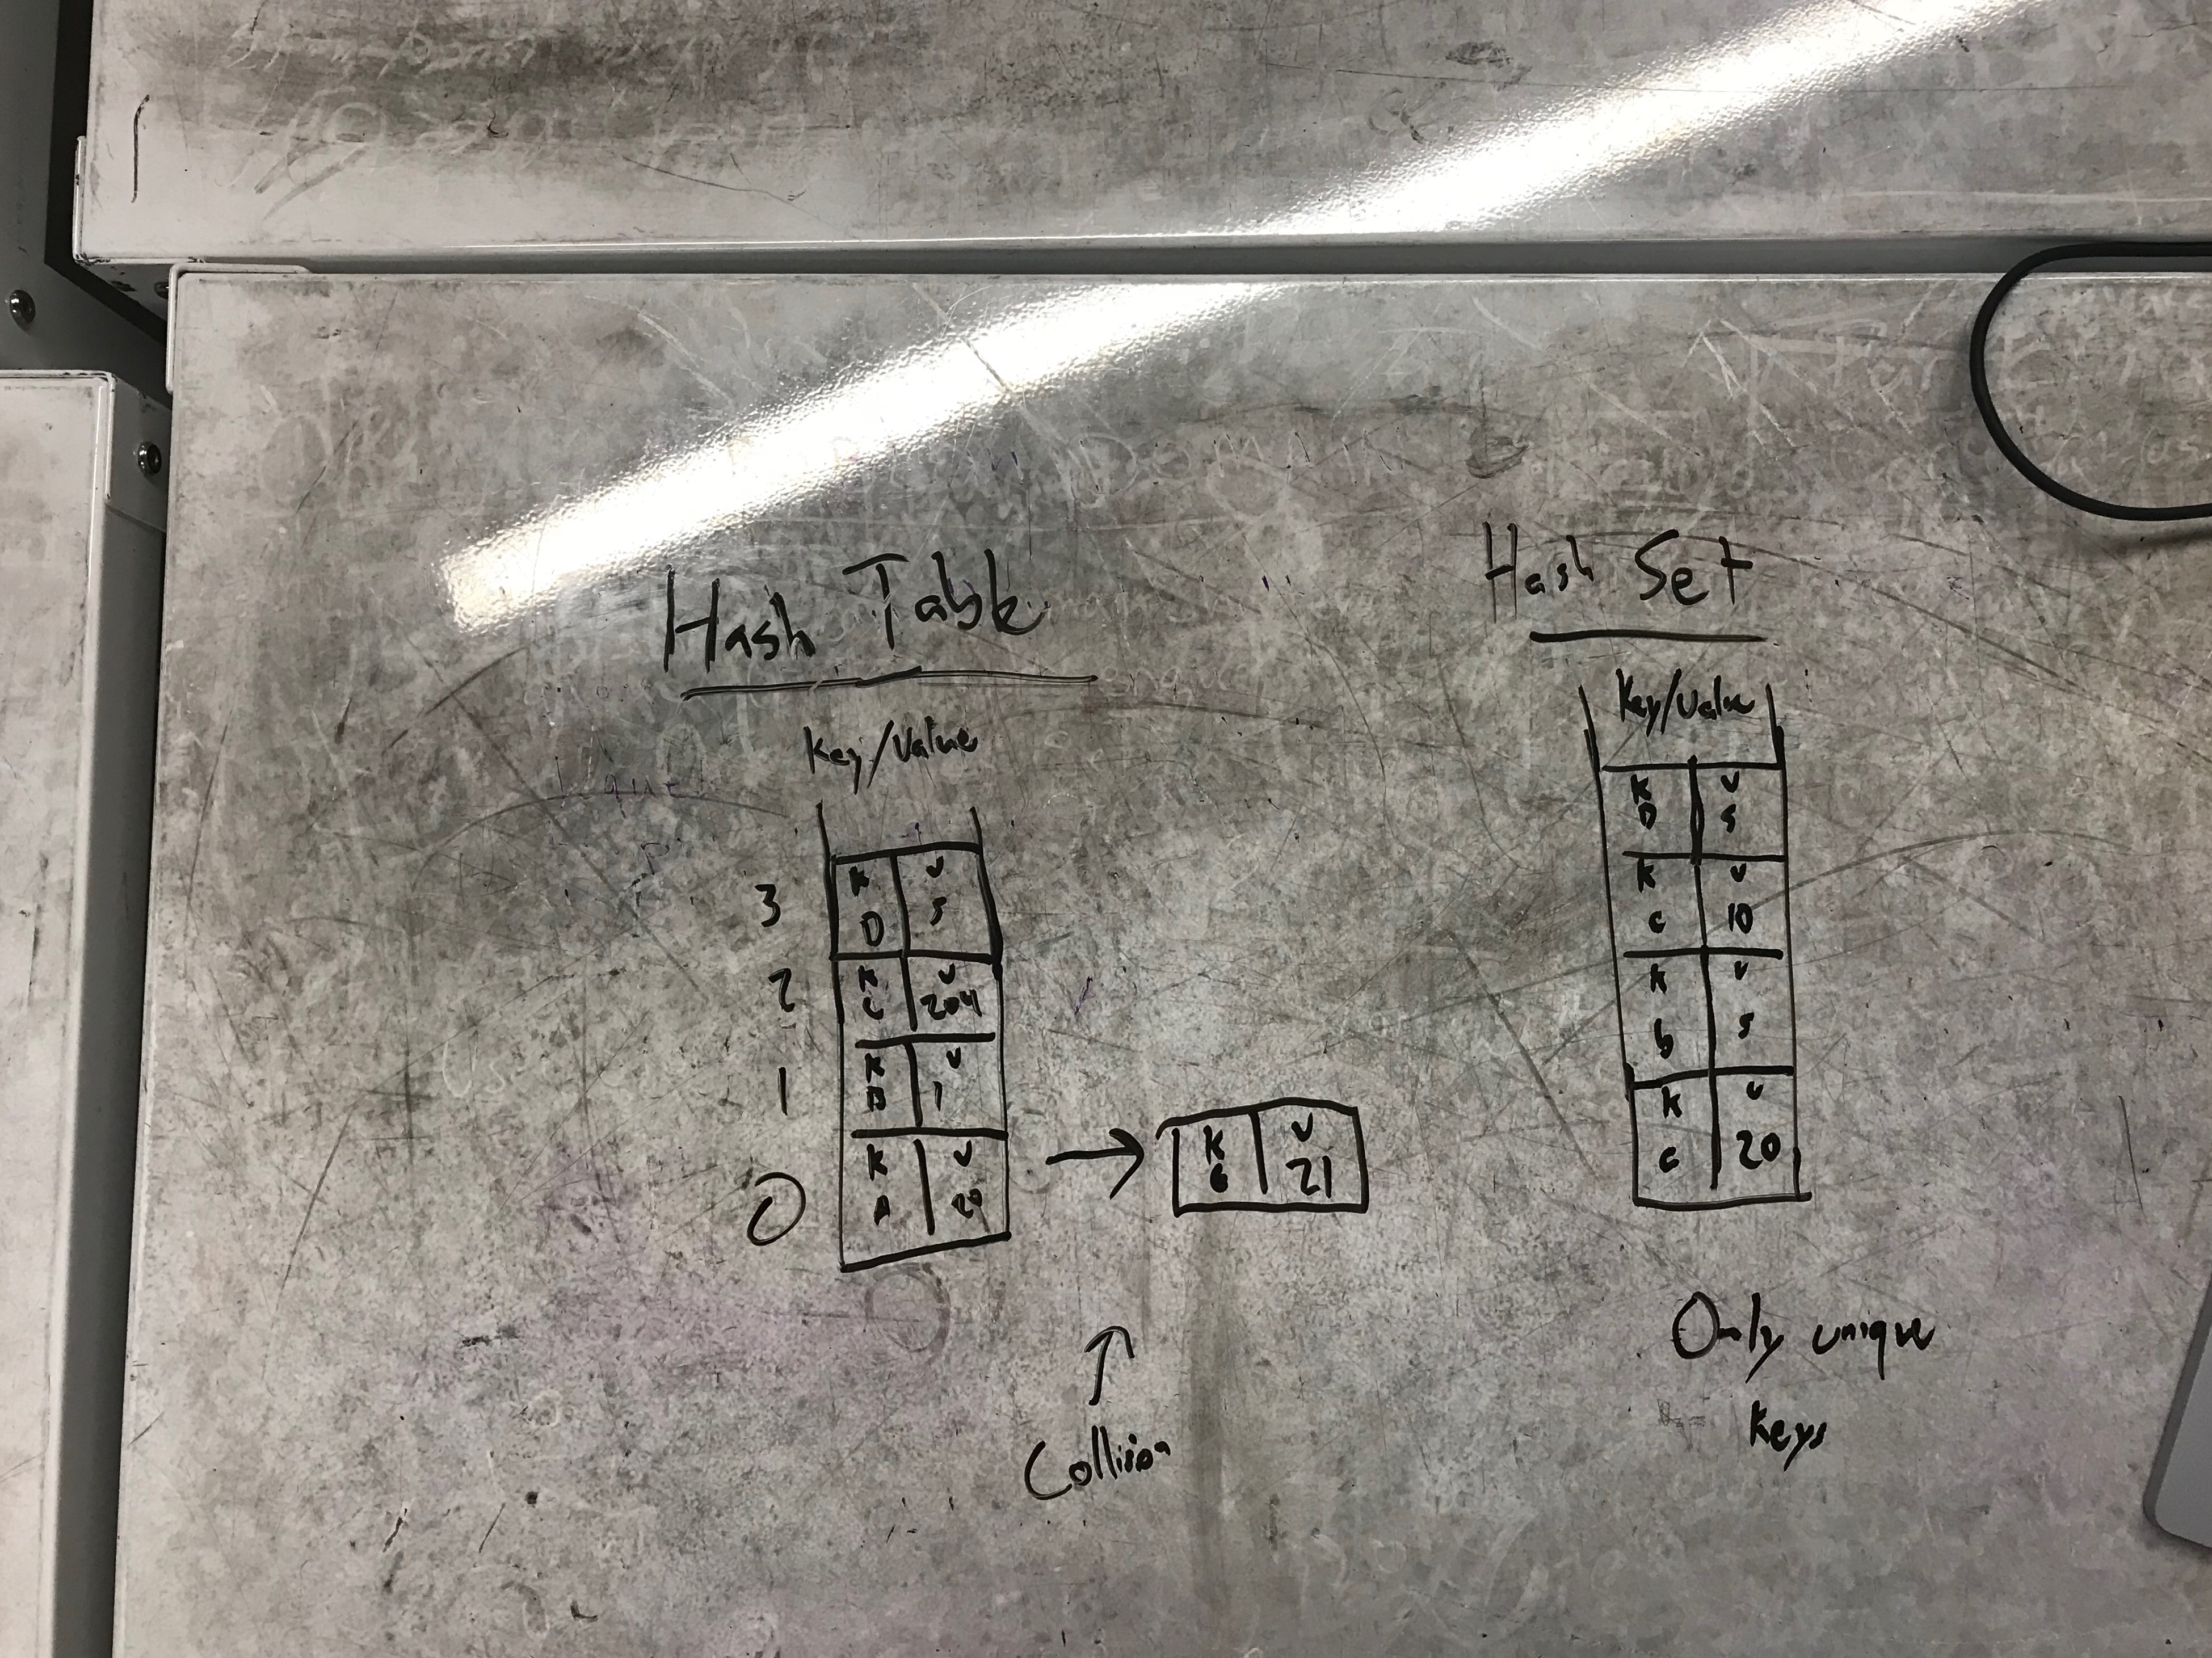 Hash Table
Key/Value
3
K V
D 5
2
K V
C 204
1
K V
B 1
0
K V
A 20
K V
6 21
Collision
Hash Set
Key/Value
K V
D 5
K V
c 10
K V
b 5
K V
20
Only unique
Keys